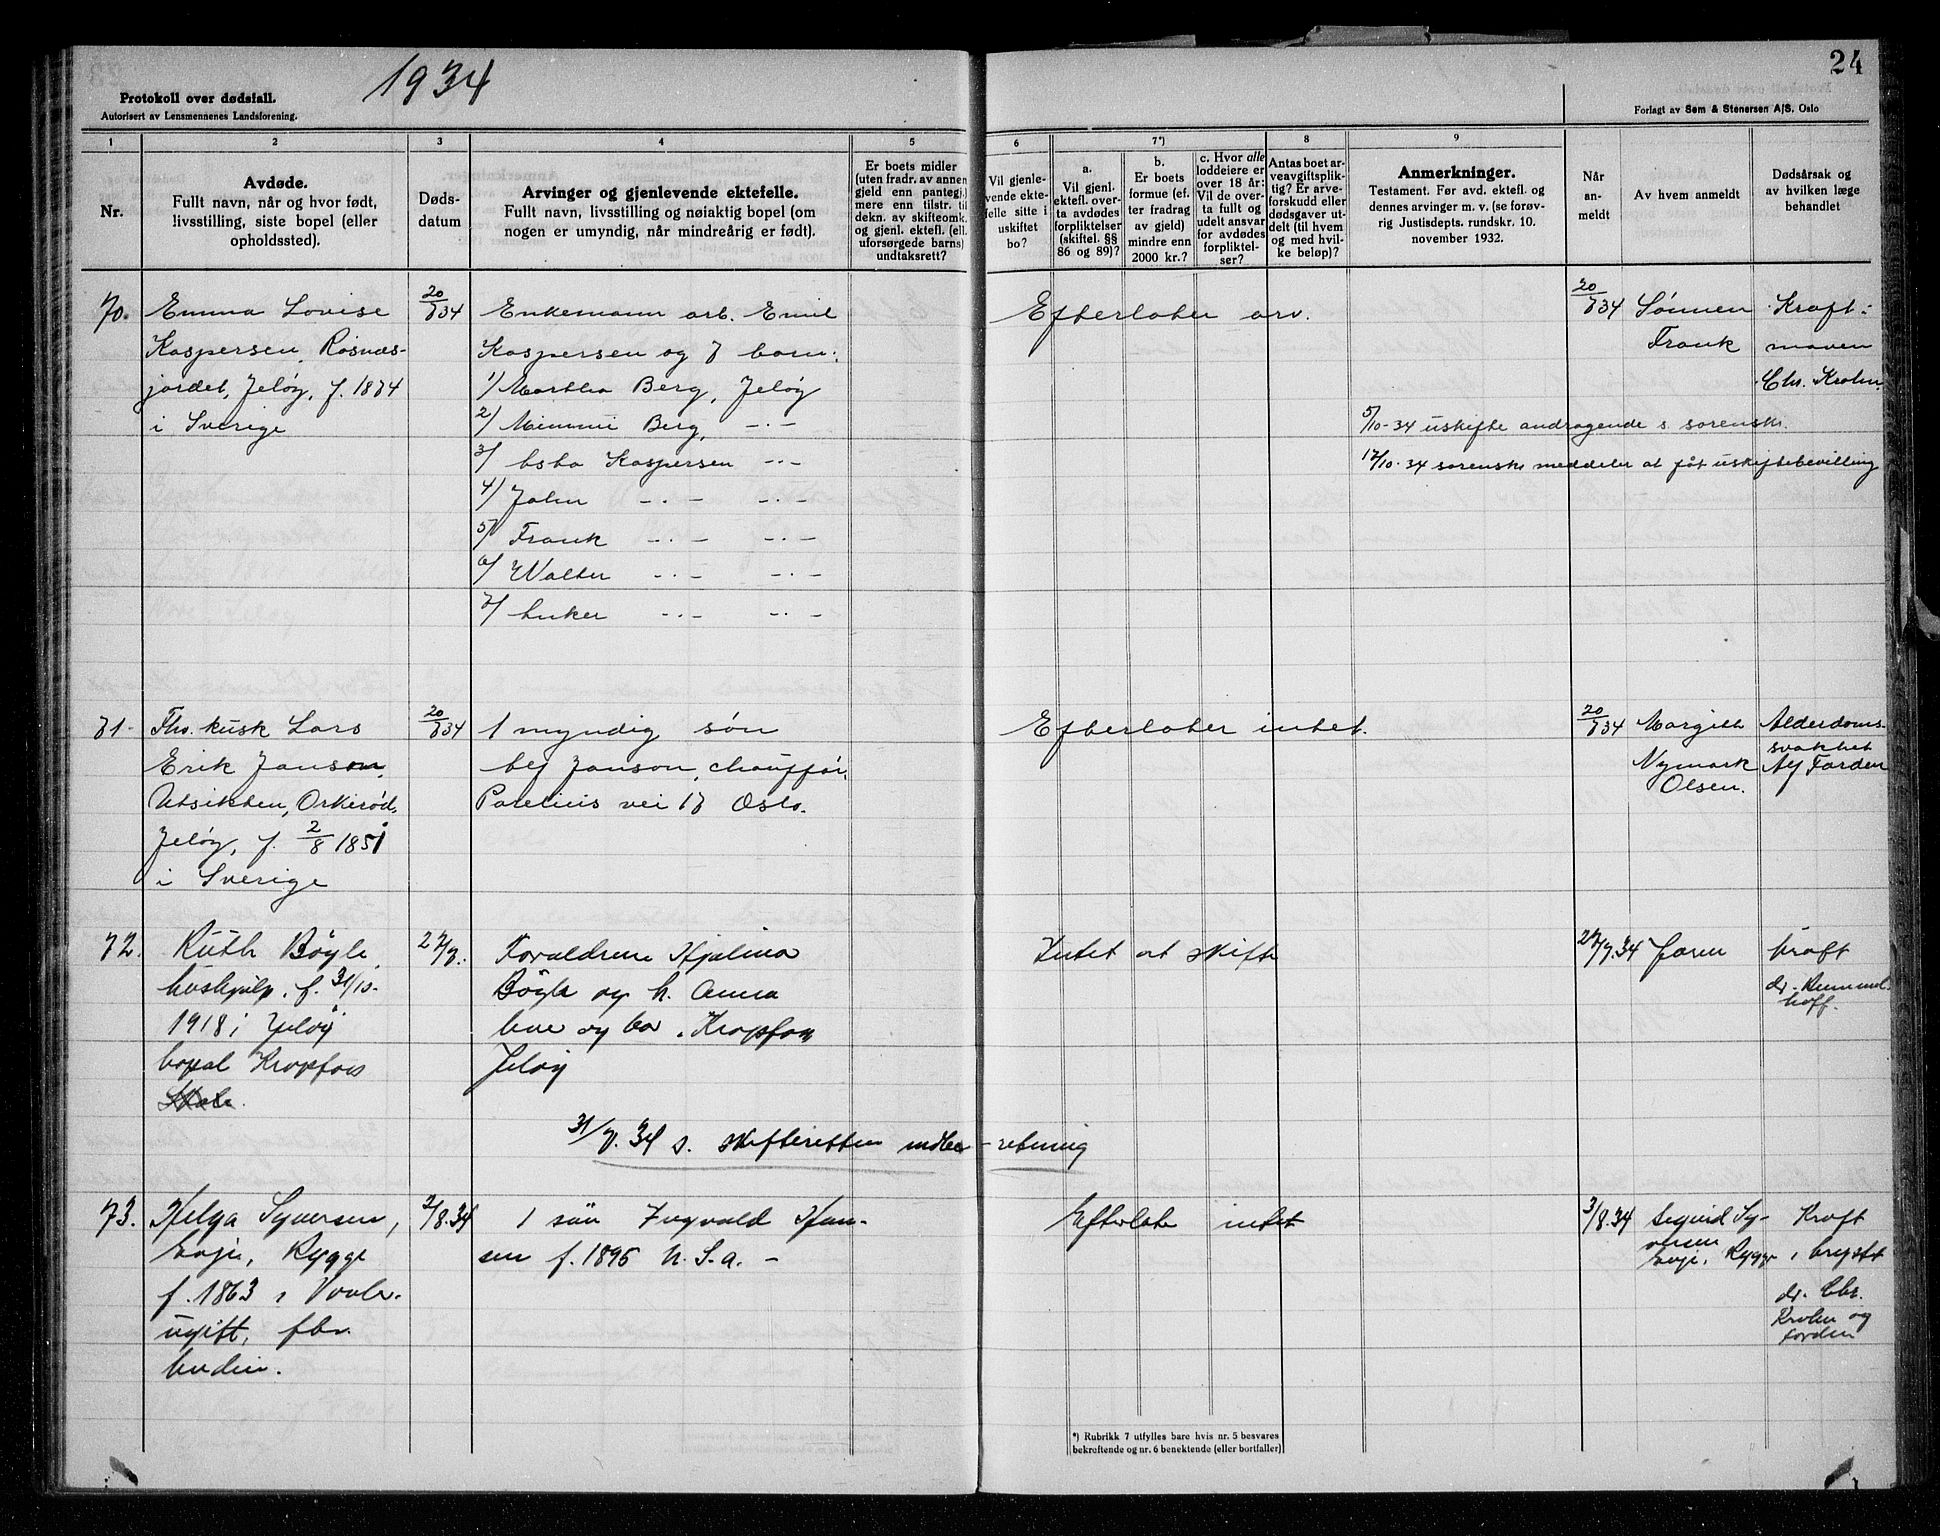 1934
24
Protokoll over dødsfall.
Autorisert av Lensmennenes Landsforening.
Forlagt av Søm & Stenersen A/S. Oslo
1 2 3 4 5 6 7*) 8 9
Nr.
Avdøde.
Fullt navn, når og hvor født,
livsstilling, siste bopel (eller
opholdssted).
Døds-
datum
Arvinger og gjenlevende ektefelle.
Fullt navn, livsstilling og nøiaktig bopel (om
nogen er umyndig, når mindreårig er født).
Er boets midler
(uten fradr. av annen
gjeld enn pantegj.)
mere enn tilstr. til
dekn. av skifteomk.
og gjenl. ektefl. (ell.
uforsørgede barns)
undtaksrett?
Vil gjenle-
vende ekte-
felle sitte i
uskiftet
bo?
a.
Vil gjenl.
ektefl. over-
ta avdødes
forpliktelser
(skiftel. §§
86 og 89)?
b.
Er boets
formue (ef-
ter fradrag
av gjeld)
mindre enn
2000 kr.?
c. Hvor alle
loddeiere er
over 18 år:
Vil de over-
ta fullt og
udelt ansvar
for avdødes
forpliktel-
ser?
Antas boet ar-
veavgiftsplik-
tig? Er arve-
forskudd eller
dødsgaver ut-
delt (til hvem
og med hvil-
ke beløp)?
Anmerkninger.
Testament. Før avd. ektefl. og
dennes arvinger m. v. (se forøv-
rig Justisdepts. rundskr. 10.
november 1932.
Når
an-
meldt
Av hvem anmeldt
Dødsårsak og
av hvilken læge
behandlet
70. Emma Lovise
Kaspersen, Rosnæs-
jordet, Jeløy, f. 1874
i Sverige
20/7 34
Enkemann arb. Emil
Kaspersen og 7 barn:
1/ Martha Berg, Jeløy
2/ Mimmi Berg, -"-
3/ Kaspersen -"-
4/ John -"- -"-
5/ Frank -"- -"-
6/ Walter -"- -"-
7/ -"- -"-
Efterlater arv.
5/10-34 uskifte andragende s. sorenskr.
17/10-34 sorenskr. meddeler at fåt uskiftebevilling
20/7 34 Sønnen
Frank
Kraft i
maven
Chr. Krohn.
71. Fhv. kusk Lars
Erik Janson,
Utsikten, Orkerød,
Jeløy, f. 2/8 1851
i Sverige
20/7 34
1 myndig søn
Janson, chauffør,
vei 17 Oslo.
Efterlater intet.
20/7 34 Margith
Nymark
Olsen.
Alderdoms-
svakhet
Alf Farden
72. Ruth Bøyle,
hushjelp, f. 31/10-
1918 i Jeløy
bopel Kropfoss
27/7.
Foreldrene Hjalmar
Bøyle og h. Anna
bor, Kropfoss
Jeløy
Intet at skifte
27/7.34 Faren
kræft
dr. Hummel-
hoff.
31/7. 34 s. skifteretten indberetning
73. Helga Syversen,
Evje, Rygge
f. 1863 i Vaaler.
ugift, fhv.
budeie.
2/8.34
1 søn Ingvald Han-
sen f. 1895 U. S. a. -
Efterlater intet
3/8.34 Sigurd Sy-
versen
Evje, Rygge
Kræft
i brystet
dr. Chr.
Krohn og
Farden
*) Rubrikk 7 utfylles bare hvis nr. 5 besvares
bekreftende og nr. 6 benektende (eller bortfaller)